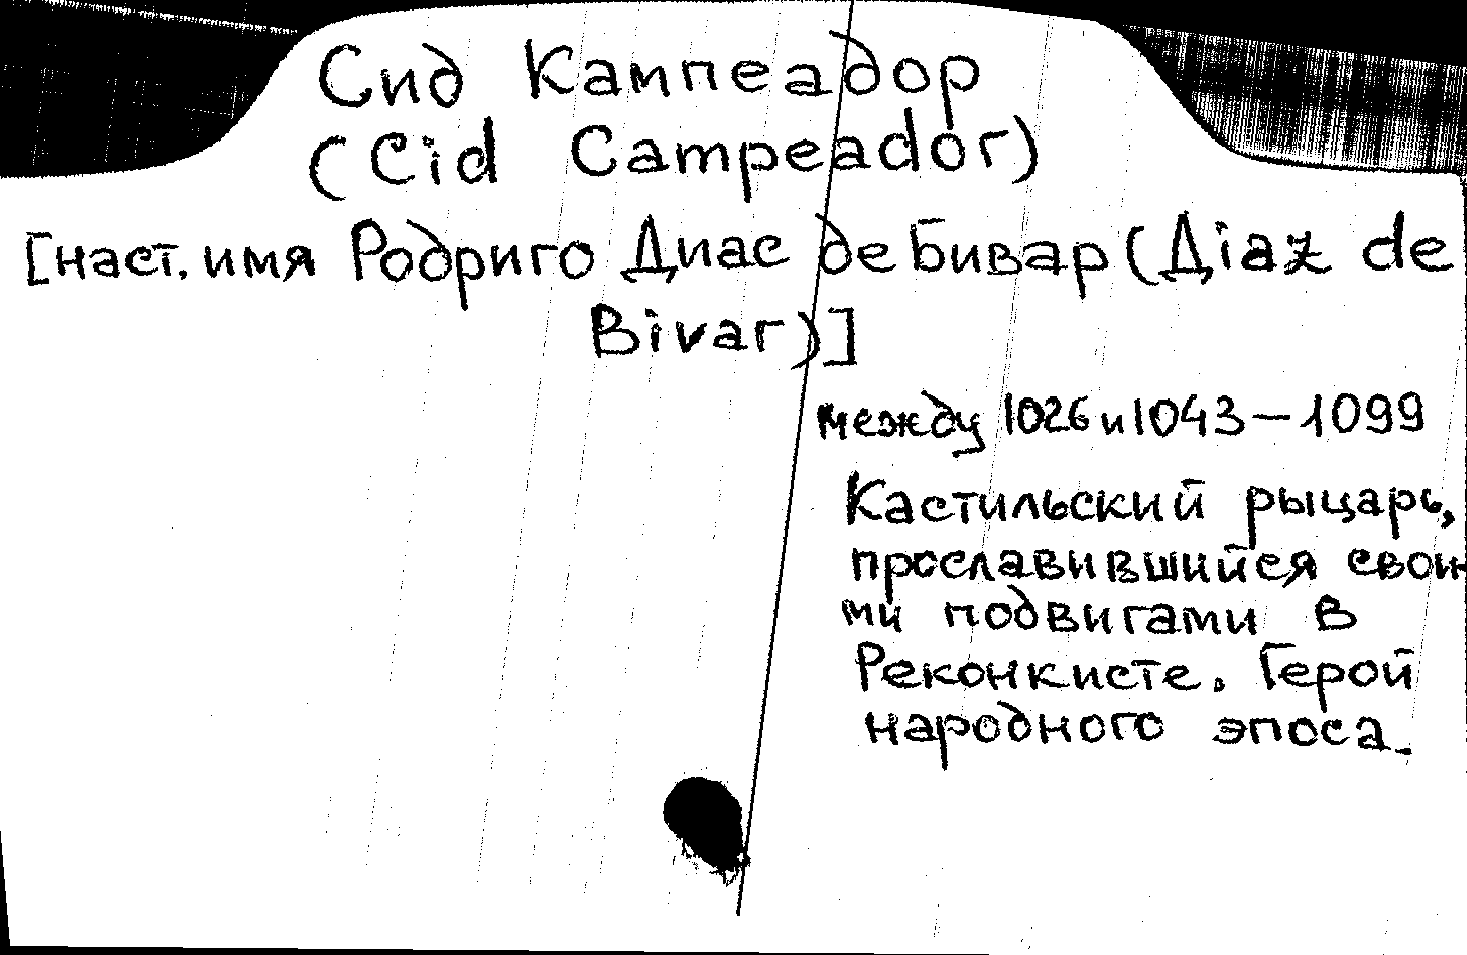 Сид Кампеадор
(Cid Campeador)
[наст. имя Родриго Диас де Бивар (Дiaz de
Bivar)]
между 1026 и 1043 – 1099
Кастильский рыцарь,
прославившийся свои-
ми подвигами в
Реконкисте. Герой
народного эпоса.